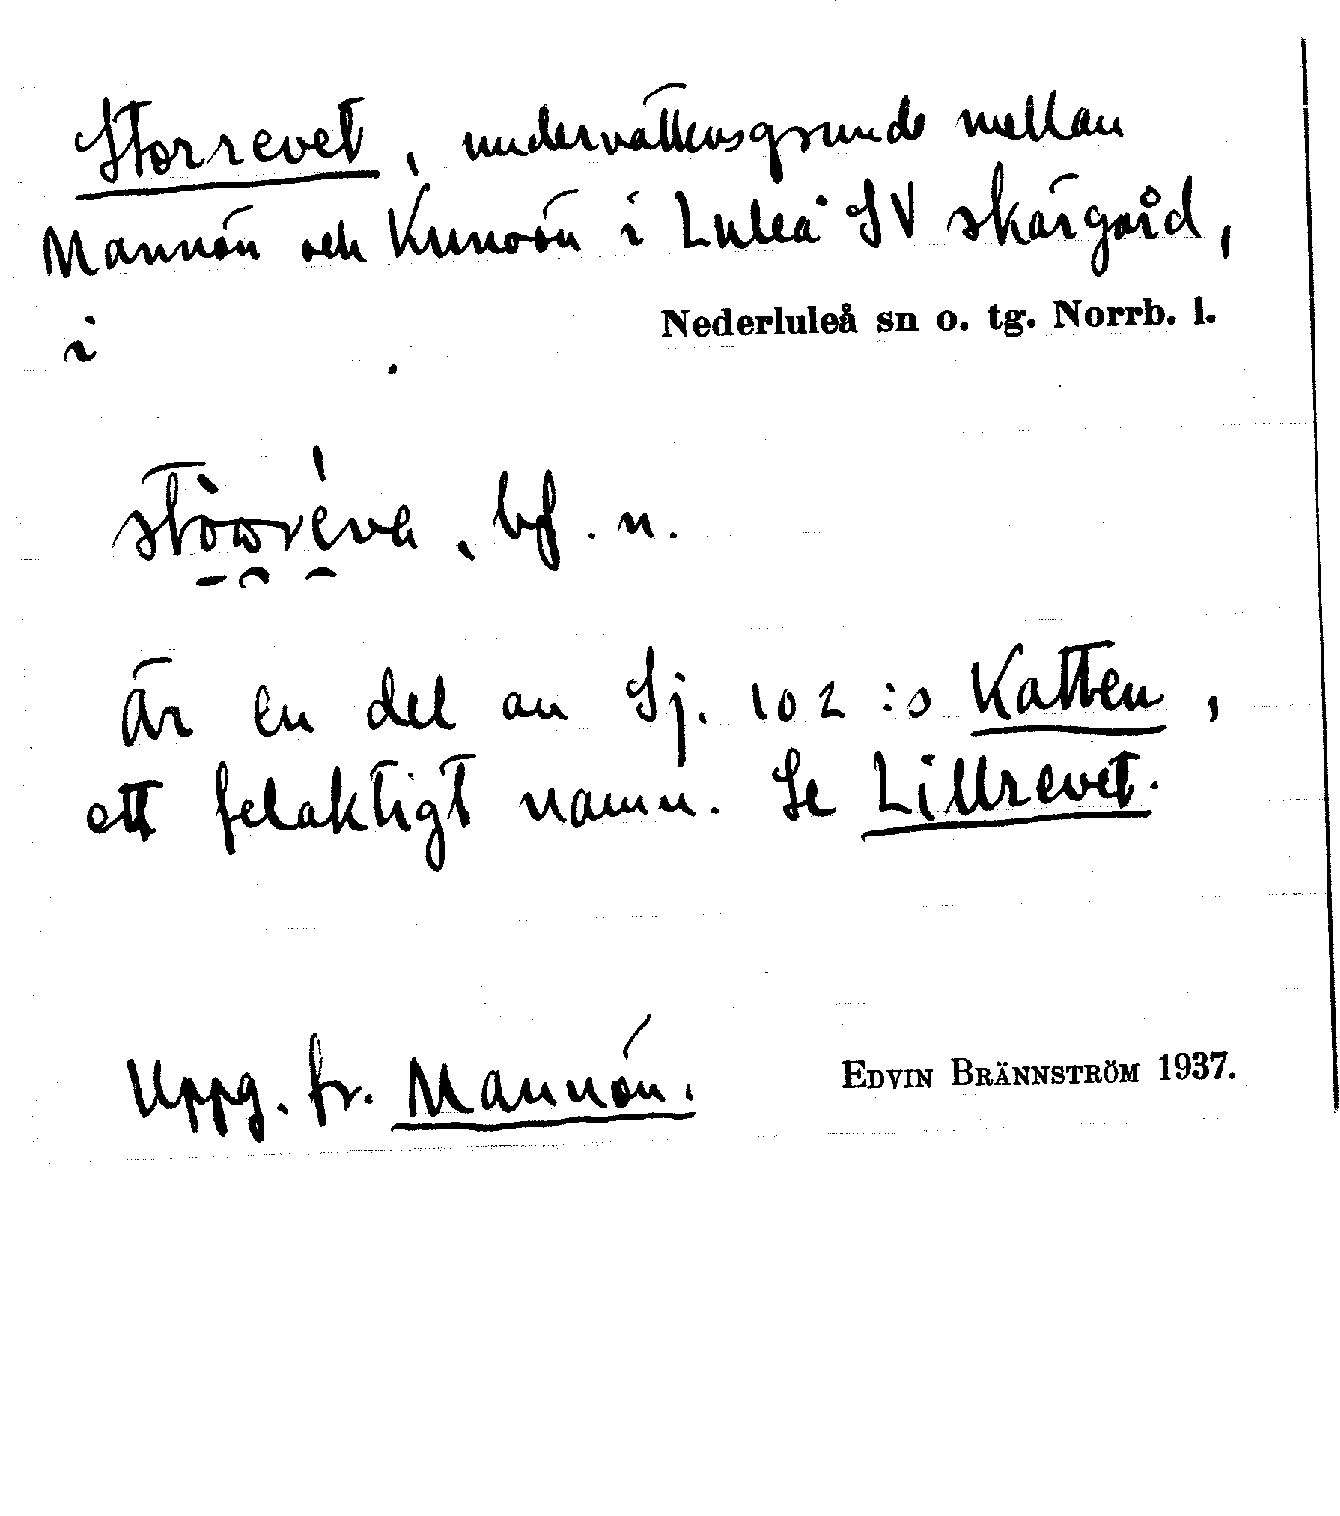 Storrevet, undervattensgrund mellan
Mannön och Kunoön i Luleå SV skärgård,
i Nederluleå sn o. tg. Norrb. l.
bf. n.
Är en del av Sj. 102:s Katten,
ett felaktigt namn. Se Lillrevet.
Uppg. fr. Mannön. EDVIN BRÄNNSTRÖM 1937.